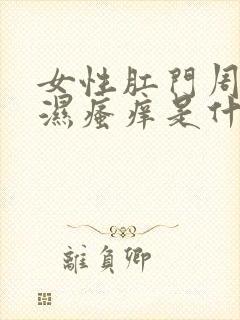 女性肛門周
濕瘙痒是什
離負卿